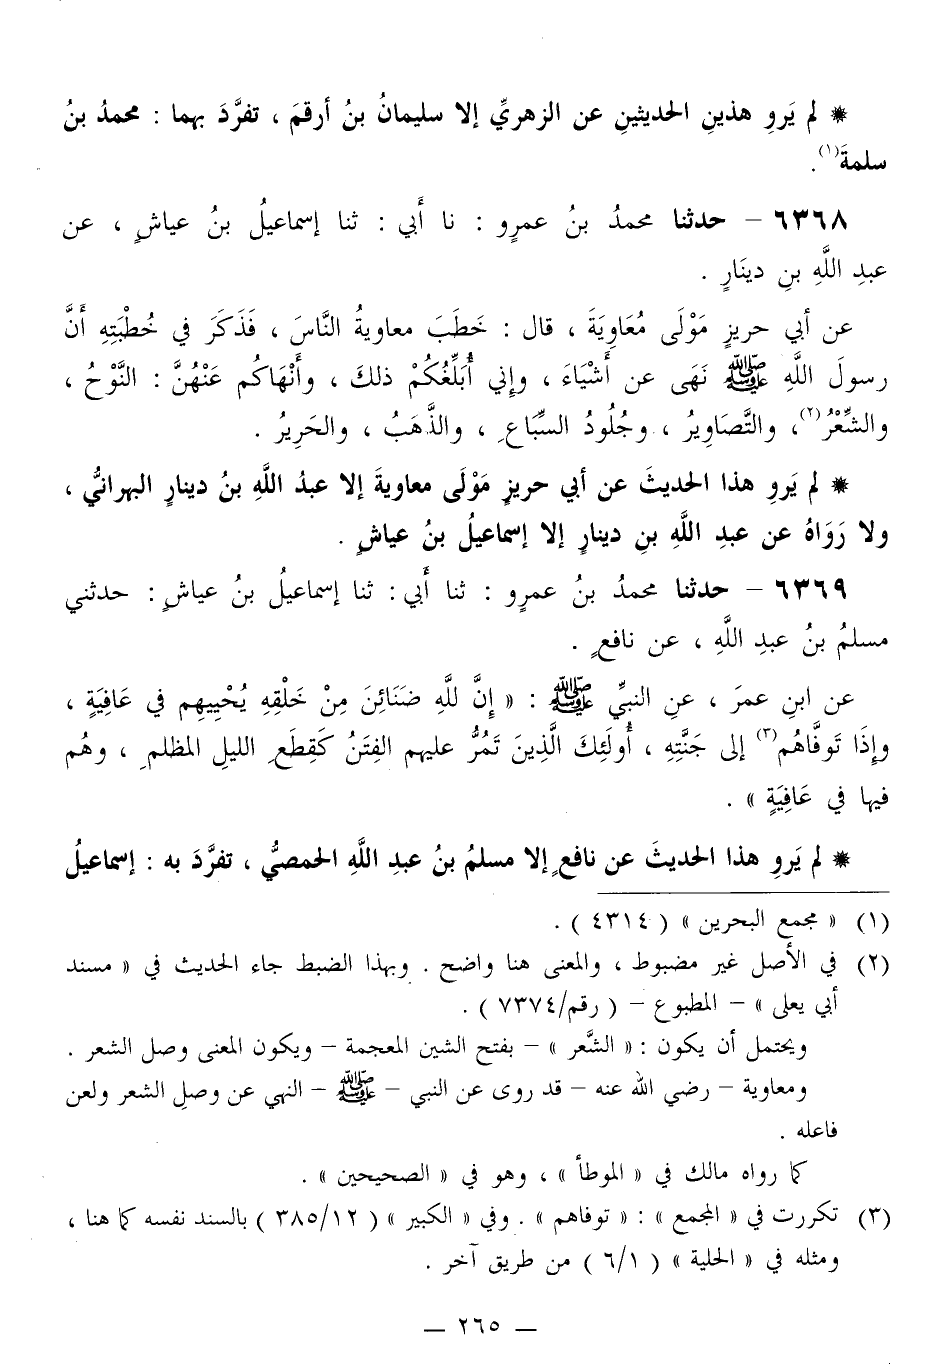 * لم يَروِ هذينِ الحديثينِ عن الزهريِّ إلا سليمانُ بنُ أرقمَ ، تفرَّدَ بهما : محمدُ بنُ
سلمةَ(١).
٦٣٦٨ – حدثنا محمدُ بنُ عمرٍو : نا أَبي : ثنا إسماعيلُ بنُ عياشٍ ، عن
عبدِ اللَّهِ بنِ دينَارٍ .
عن أبي حريزٍ مَوْلَى مُعَاوِيَةَ ، قال : خَطَبَ معاويةُ النَّاسَ ، فَذَكَرَ في خُطْبَتِهِ أَنَّ
رسولَ اللَّهِ ﷺ نَهَى عن أَشْيَاءَ ، وإني أُبَلِّغُكُمْ ذلكَ ، وأَنْهَاكُم عَنْهُنَّ : النَّوْحُ ،
والشِّعْرُ(٢)، والتَّصَاوِيرُ ، وجُلُودُ السِّبَاعِ ، والذَّهَبُ ، والحَرِيرُ .
* لم يَروِ هذا الحديثَ عن أبي حريزٍ مَوْلَى معاويةَ إلا عبدُ اللَّهِ بنُ دينارٍ البهرانيُّ ،
ولا رَوَاهُ عن عبدِ اللَّهِ بنِ دينارٍ إلا إسماعيلُ بنُ عياشٍ .
٦٣٦٩ – حدثنا محمدُ بنُ عمرٍو : ثنا أَبي : ثنا إسماعيلُ بنُ عياشٍ : حدثني
مسلمُ بنُ عبدِ اللَّهِ ، عن نافعٍ .
عن ابنِ عمرَ ، عنِ النبيِّ ﷺ : « إِنَّ للَّهِ ضَنَائِنَ مِنْ خَلْقِهِ يُحْيِيهِم في عَافِيَةٍ ،
وإِذَا تَوفَّاهُم(٣) إلى جَنَّتِهِ ، أُولَئِكَ الَّذِينَ تَمُرُّ عليهم الفِتَنُ كَقِطَعِ الليلِ المظلمِ ، وهُم
فيها في عَافِيَةٍ » .
* لم يَروِ هذا الحديثَ عن نافعٍ إلا مسلمُ بنُ عبدِ اللَّهِ الحمصيُّ ، تفرَّدَ به : إسماعيلُ
(١) « مجمع البحرين » ( ٤٣١٤ ) .
(٢) في الأصل غير مضبوط ، والمعنى هنا واضح . وبهذا الضبط جاء الحديث في « مسند
أبي يعلى » – المطبوع – ( رقم/٧٣٧٤ ) .
ويحتمل أن يكون : « الشَّعر » – بفتح الشين المعجمة – ويكون المعنى وصل الشعر .
ومعاوية – رضي الله عنه – قد روى عن النبي – ﷺ – النهي عن وصلِ الشعر ولعن
فاعله .
كما رواه مالك في « الموطأ » ، وهو في « الصحيحين » .
(٣) تكررت في « المجمع » : « توفاهم » . وفي « الكبير » ( ٣٨٥/١٢ ) بالسند نفسه كما هنا ،
ومثله في « الحلية » ( ٦/١ ) من طريق آخر .
— ٢٦٥ —